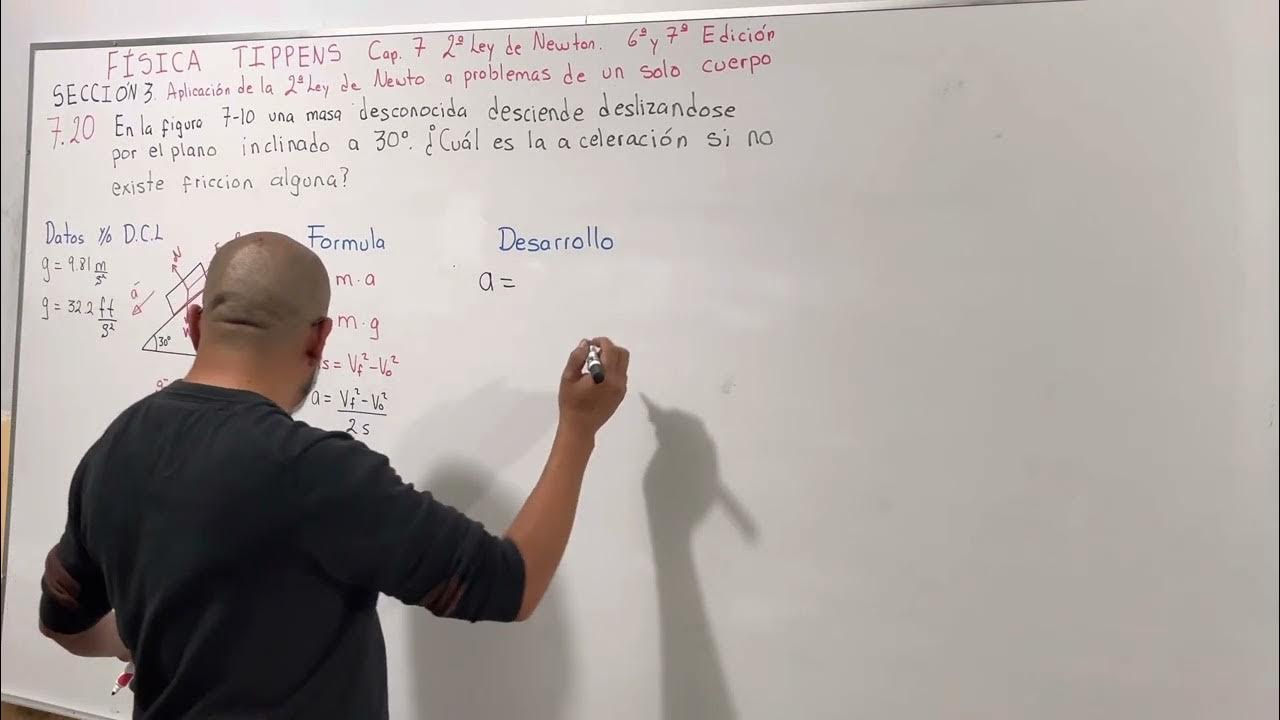 FÍSICA TIPPENS Cap. 7 2ª Ley de Newton. 6ª y 7ª Edición
SECCIÓN 3. Aplicación de la 2ª Ley de Newto a problemas de un solo cuerpo
7.20 En la figura 7-10 una masa desconocida desciende deslizandose
por el plano inclinado a 30°. ¿Cuál es la aceleración si no
existe friccion alguna?
Datos y/o D.C.L
Formula
Desarrollo
g = 9.81 m/s²
g = 32.2 ft/s²
N
a
30°
m·a
m·g
s = Vf² - Vo²
a = Vf² - Vo² / 2s
a =